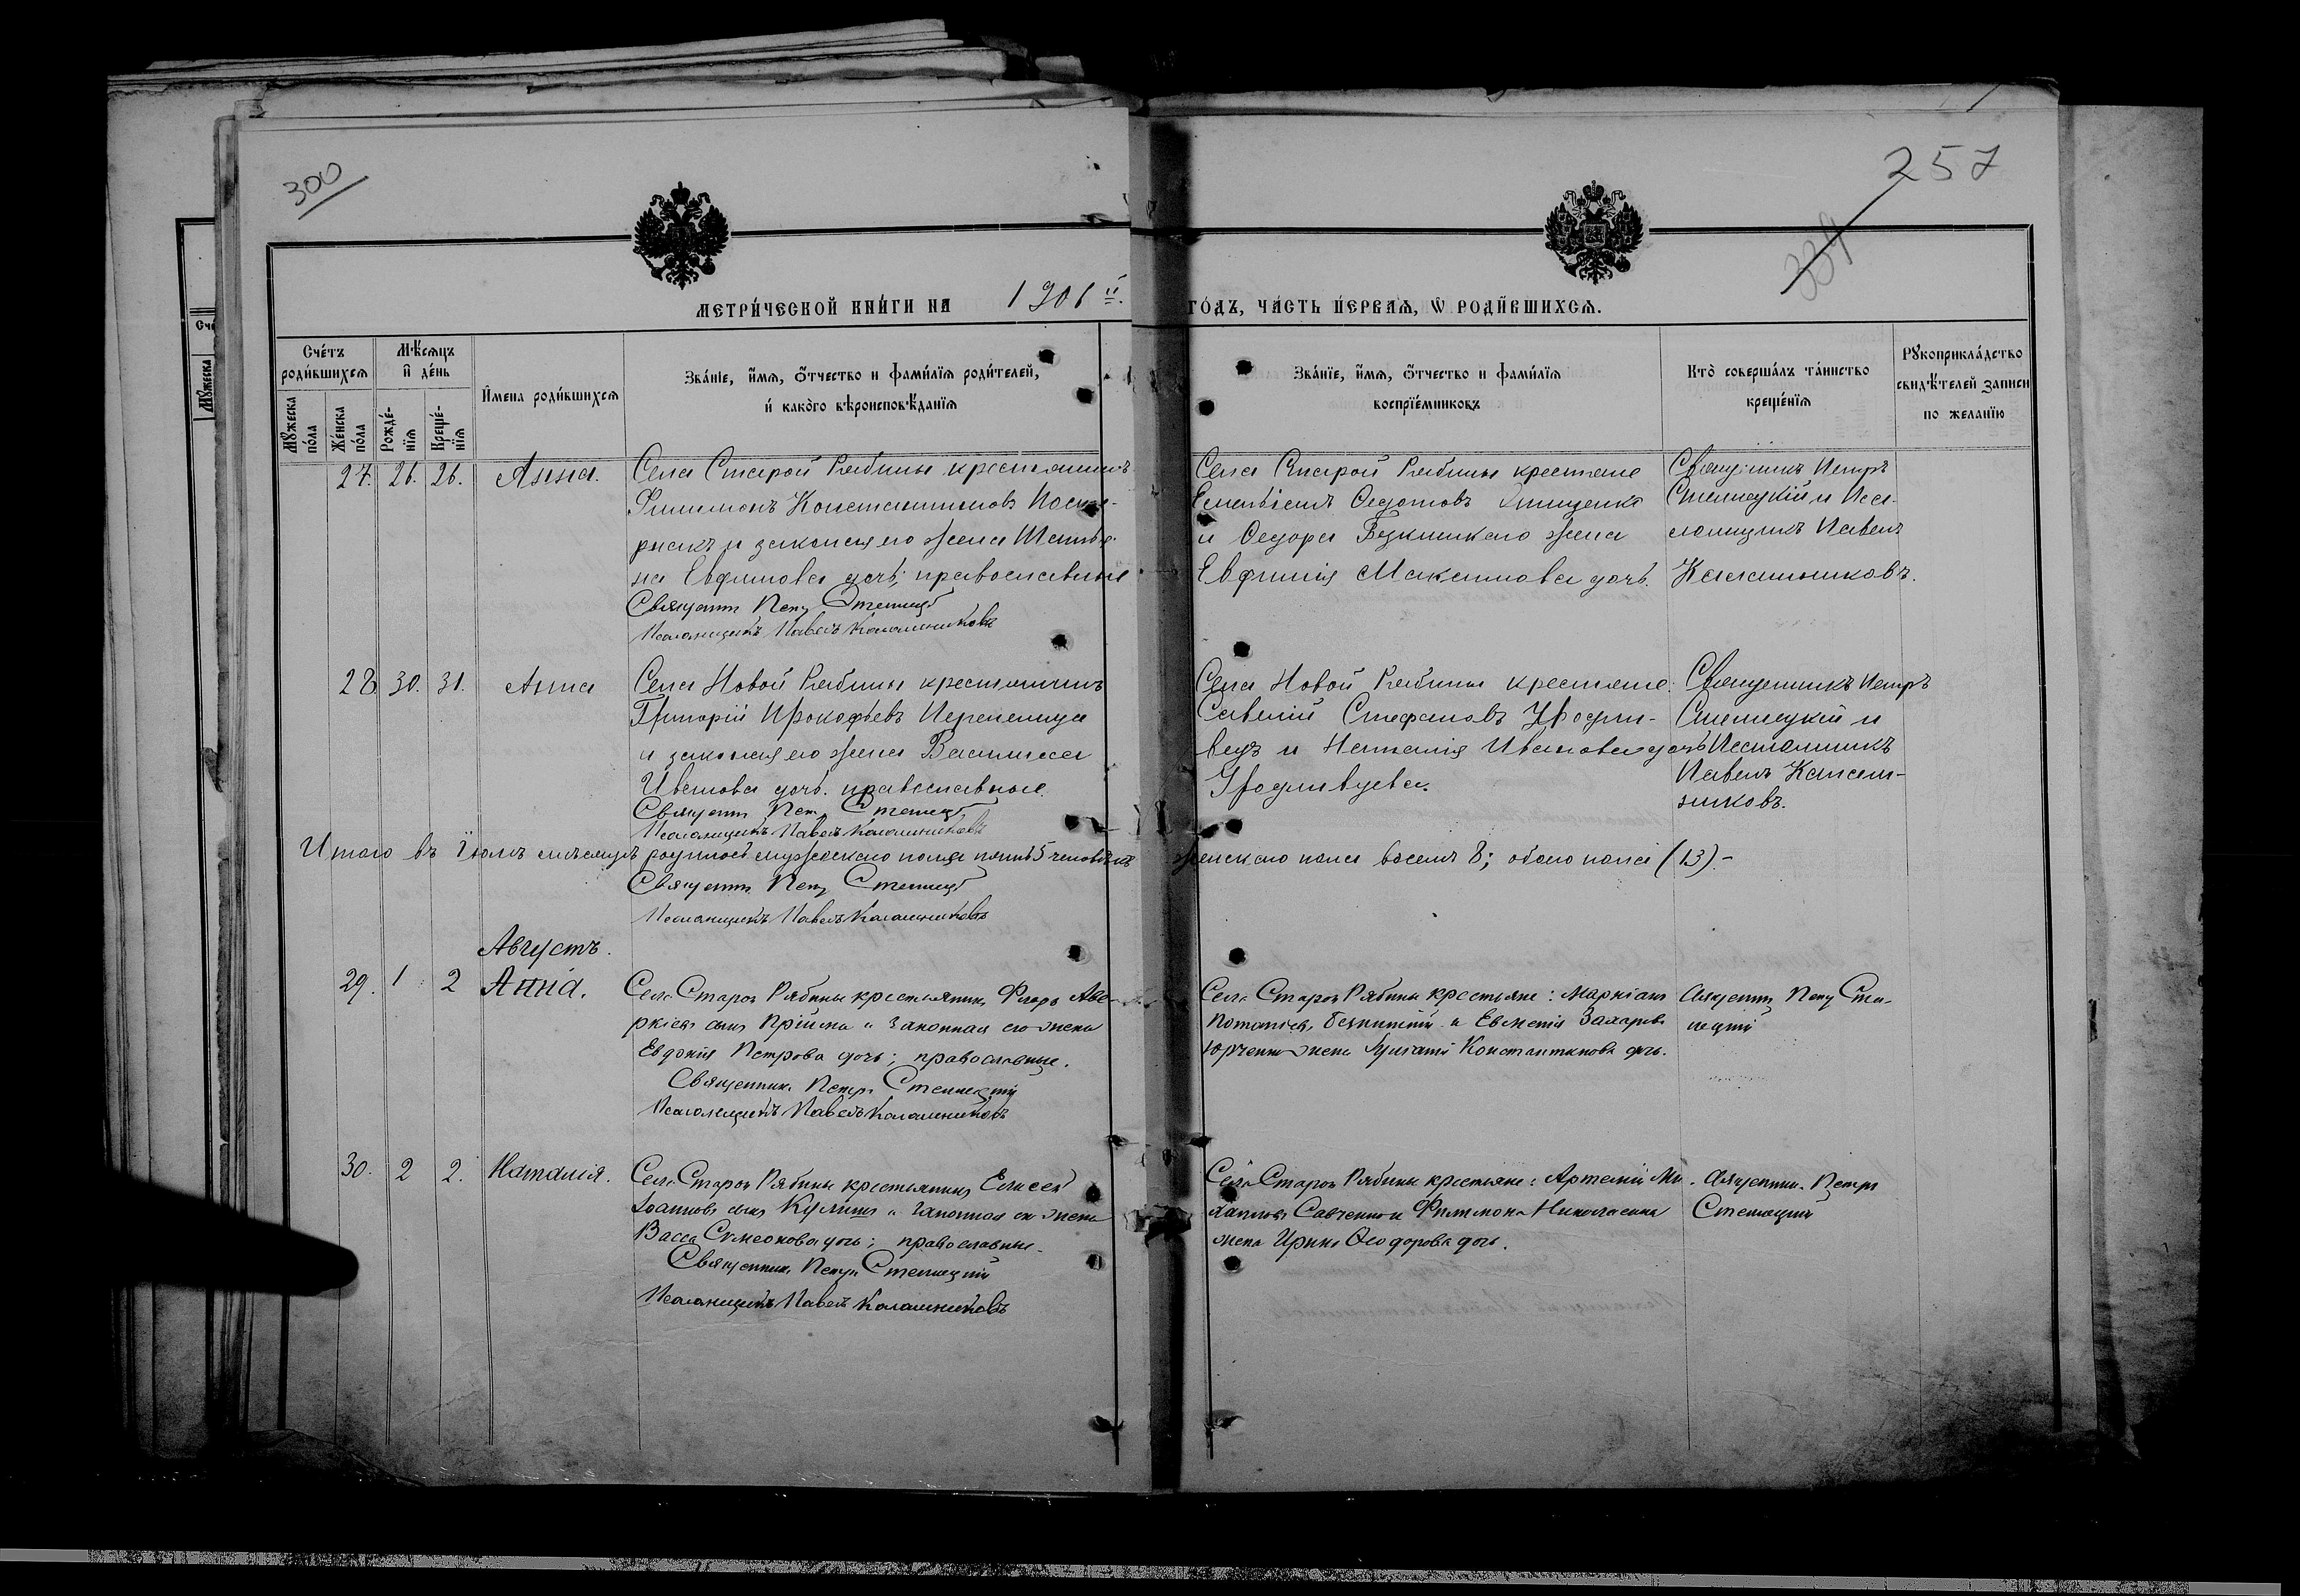 300
257
334
МЕТРИ́ЧЕСКОЙ КНИ́ГИ НА 1901 й.
ГО́ДЪ, ЧА́СТЬ ПЕ́РВАЯ, Ѡ РОДИ́ВШИХСЯ.
Сче́тъ роди́вшихся
Мꙋ́жеска по́ла
Же́нска по́ла
Мѣ́сяцъ и де́нь
Рожде́-нїя
Креще́-нїя
Имена роди́вшихся
Зва́нїе, и́мя, о́тчество и фами́лїя роди́телей,
и како́го вѣроисповѣ́данїя
Зва́нїе, и́мя, о́тчество и фами́лїя
воспрїе́мниковъ
Кто̀ соверша́лъ та́инство
креще́нїя
Рꙋкоприкла́дство
свидѣ́телей записи
по жела́нїю
27. 26. 26. Анна.
Села Старой Рябины крестьянинъ
Филимонъ Константиновъ
и законная его жена Татья-
на Евфимова дочь; православные
Священн. Петр Стеллецк
Псаломщикъ Павелъ Калашниковъ
Села Старой Рябины крестьяне
Федотовъ Онищенко
и жена
Евфимія Максимова дочь.
Священникъ Петръ
Стеллецкій и Пса-
ломщикъ Павелъ
Калашниковъ.
28 30. 31. Анна
Села Новой Рябины крестьянинъ
Григорій Прокофьевъ Перепелица
и законная его жена Василиса
Иванова дочь. православные.
Священн. Петр Стеллецк
Псаломщикъ Павелъ Калашниковъ
Села Новой Рябины крестьяне:
Савелій Стефановъ Уродли-
вецъ и Наталія Иванова дочь
Уродливцева.
Священникъ Петръ
Стеллецкій и
Псаломщикъ
Павелъ Калаш-
никовъ.
Итого въ Іюлѣ мѣсяцѣ родилось мужескаго пола пять 5 человѣкъ женскаго пола восемь 8; обоего пола (13).-
Священн. Петр Стеллецк
Псаломщикъ Павелъ Калашниковъ
Августъ.
29. 1 2 Анна.
Села Старой Рябины крестьянинъ Флоръ Аве-
ркіевъ сынъ Прійма и законная его жена
Евдокія Петрова дочь; православные.
Священникъ Петръ Стеллецкій
Псаломщикъ Павелъ Калашниковъ
Села Старой Рябины крестьяне: Маркіанъ
и Евменія Захарова
Юрченка жена Константинова дочь.
Священн. Петр Сте-
лецкій
30. 2 2. Наталія.
Села Старой Рябины крестьянинъ Елисей
Іоанновъ сынъ Кулишъ и законная его жена
Васса Симеонова дочь; православные.
Священникъ Петръ Стеллецкій
Псаломщикъ Павелъ Калашниковъ
Села Старой Рябины крестьяне: Артемій Ми-
хаиловъ Савченко и Филимона Николаенка
жена Ирина Ѳеодорова дочь.
Священникъ Петръ
Стеллецкій